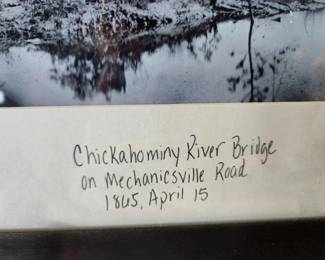 Chickahominy River Bridge
on Mechanicsville Road
1865, April 15